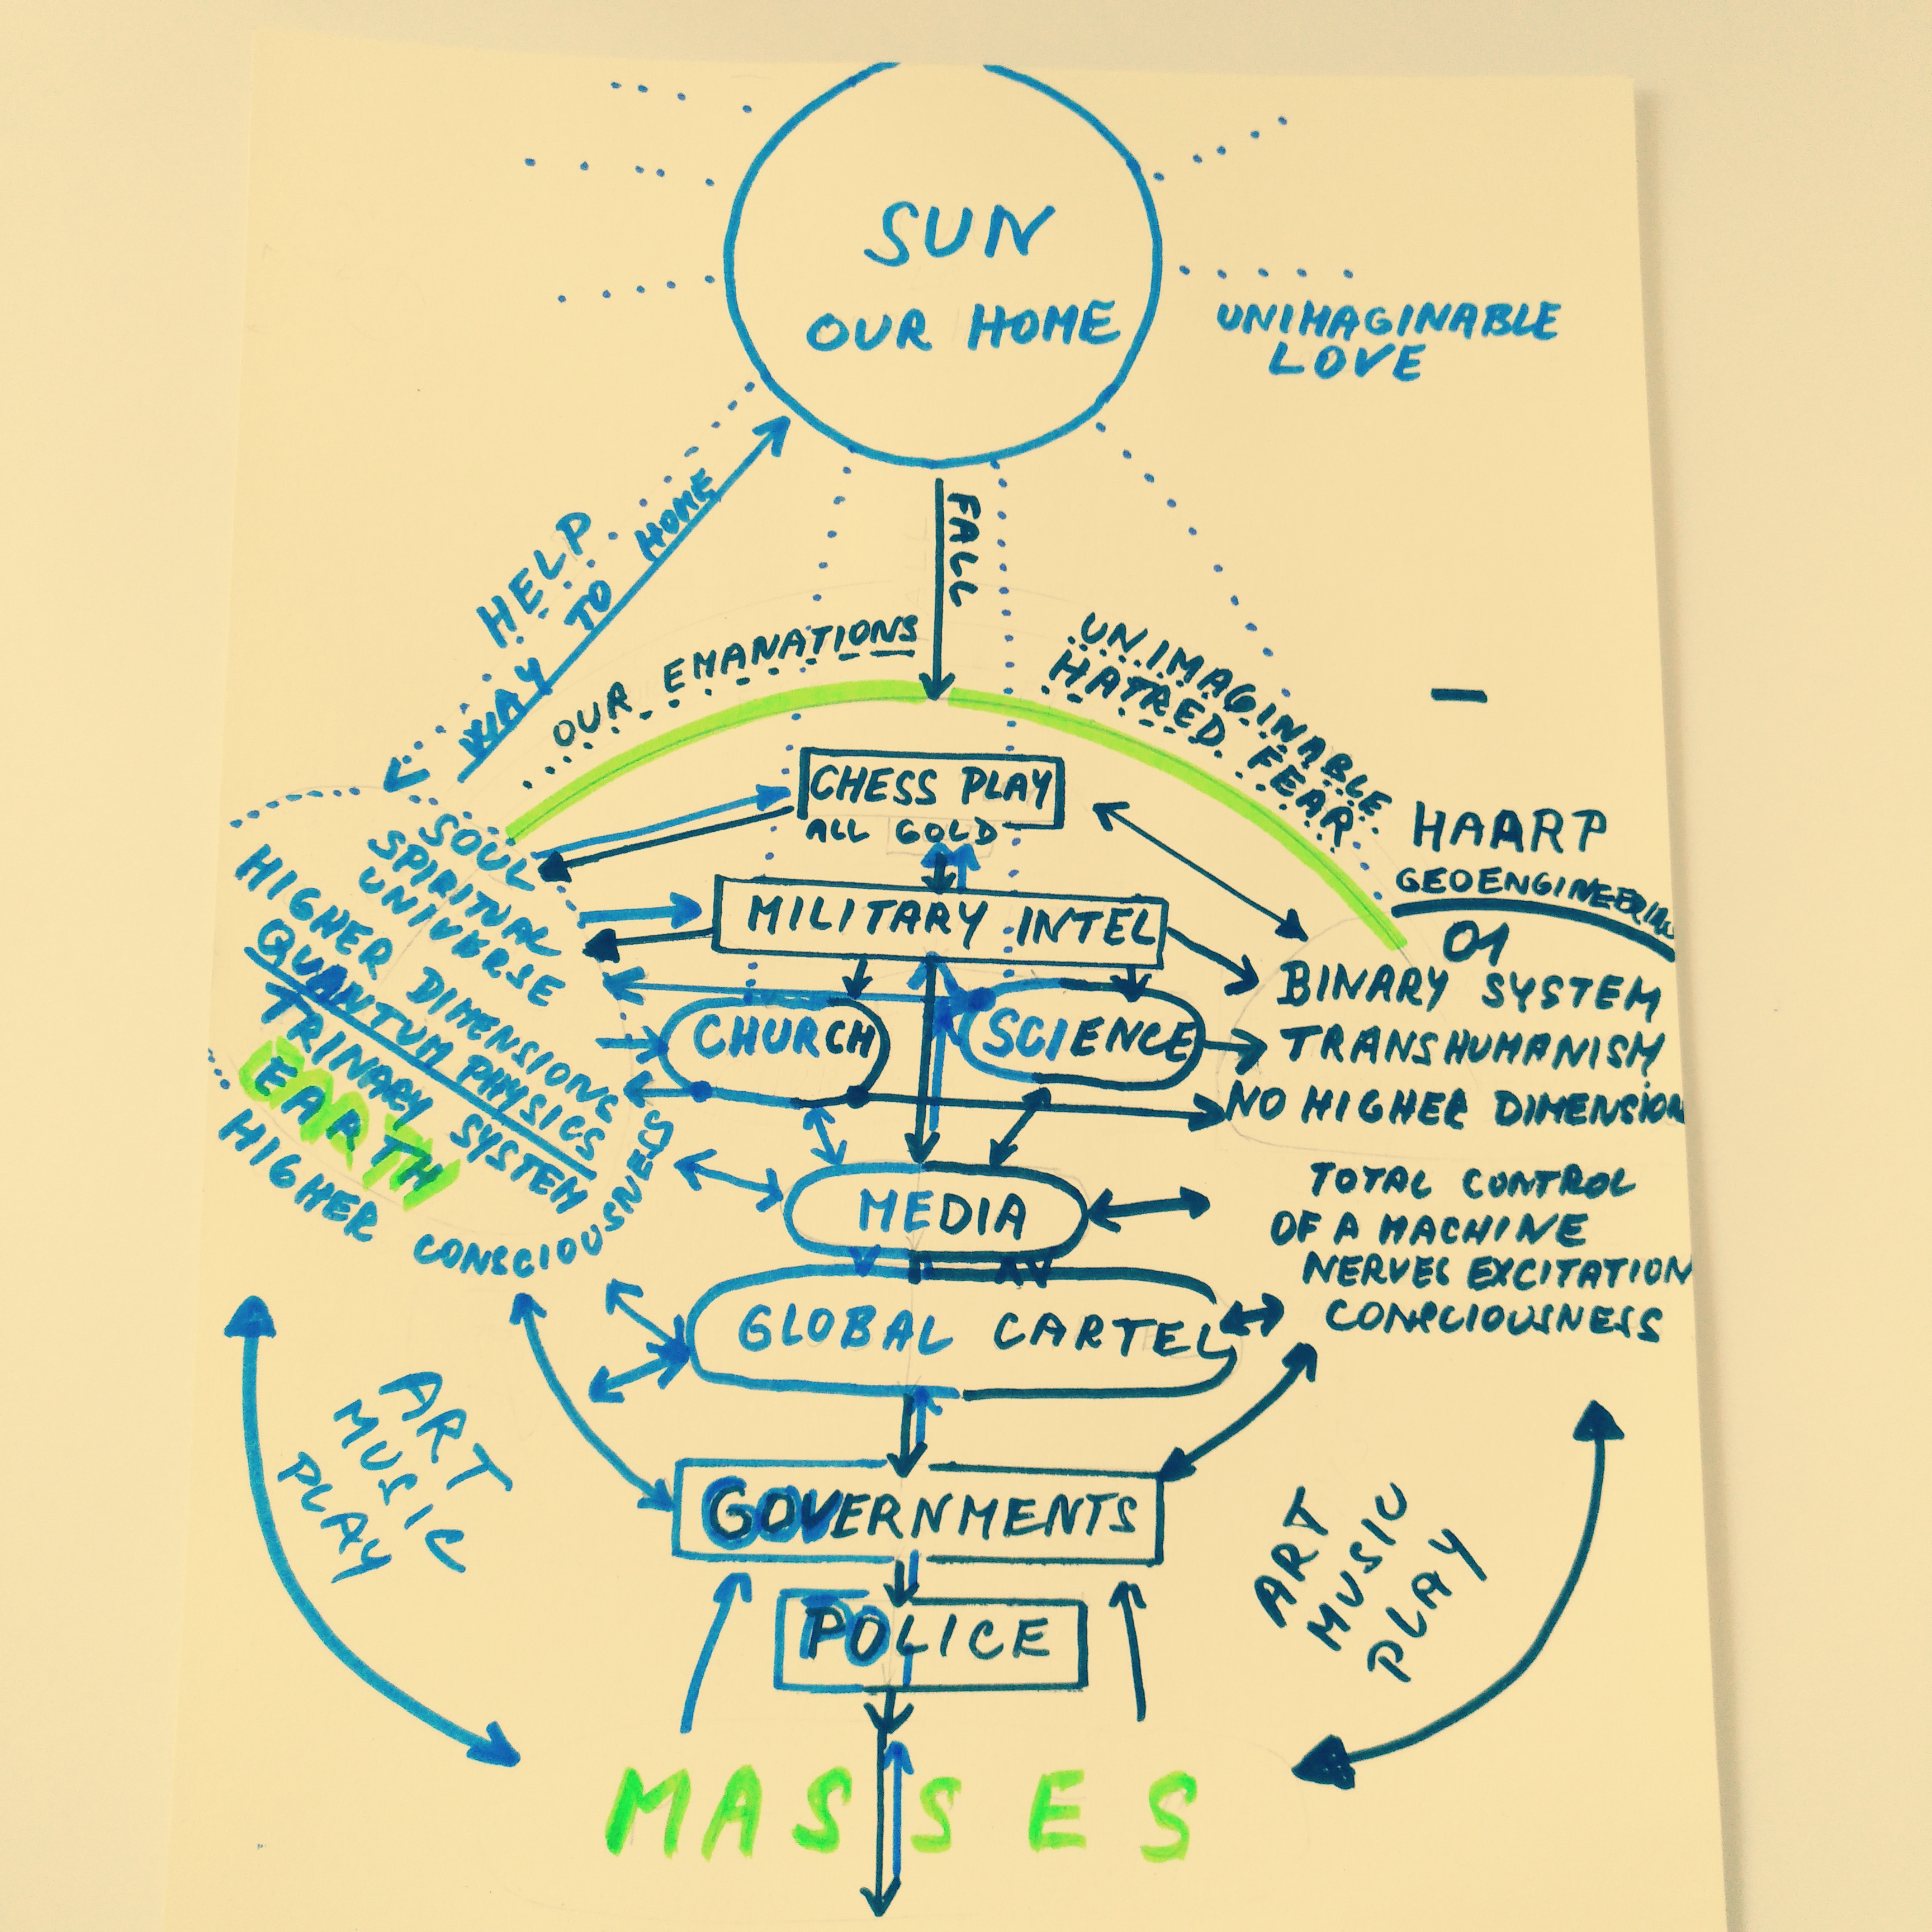 SUN
OUR HOME
UNIMAGINABLE
LOVE
FALL
HELP
WAY TO HOME
OUR EMANATIONS
UNIMAGINABLE
HATRED FEAR
CHESS PLAY
ALL GOLD
HAARP
GEOENGINEERING
01
MILITARY INTEL
SOUL
SPIRITUAL
UNIVERSE
HIGHER DIMENSIONS
QUANTUM PHYSICS
TRINARY SYSTEM
EARTH
HIGHER CONSCIOUSNESS
CHURCH
SCIENCE
BINARY SYSTEM
TRANSHUMANISM
NO HIGHER DIMENSION
MEDIA
TOTAL CONTROL
OF A MACHINE
NERVES EXCITATION
CONSCIOUSNESS
GLOBAL CARTEL
ART
MUSIC
PLAY
GOVERNMENTS
ART
MUSIC
PLAY
POLICE
MASSES